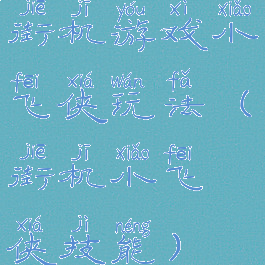 jiē jī yóu xì xiǎo
街机游戏小
fēi xiá wán fǎ
飞侠玩法（
jiē jī xiǎo fēi
街机小飞
xiá jì néng
侠技能）